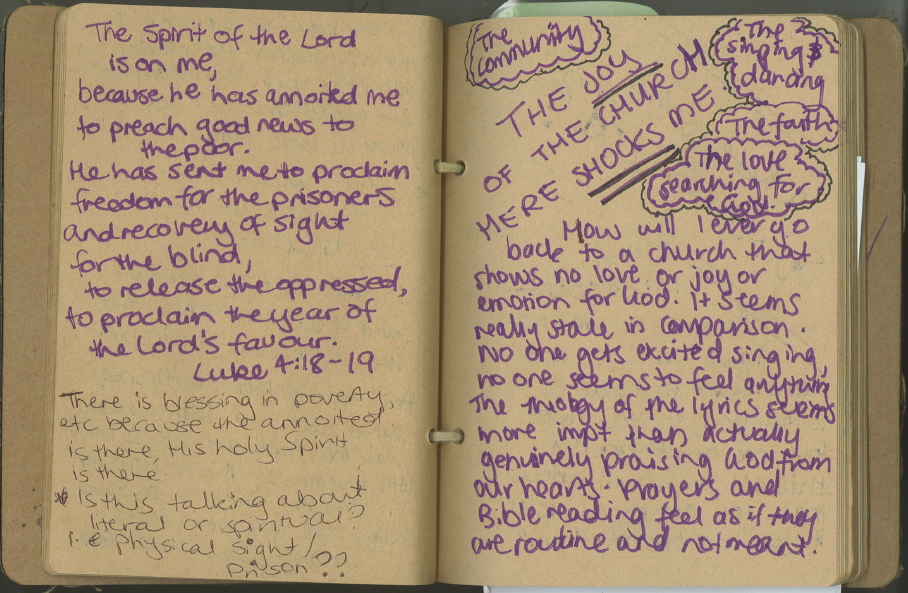 The Spirit of the Lord
is on me,
because he has annoited me
to preach good news to
the poor.
He has sent me to proclaim
freedom for the prisoners
and recovery of sight
for the blind,
to release the oppressed,
to proclaim the year of
the Lord's favour.
Luke 4:18-19
There is blessing in poverty,
etc because the annoited
is there, His holy Spirit
is there
* Is this talking about
literal or spiritual?
i.e physical sight/
prison??
The
community
The
singing &
dancing
THE JOY
OF THE CHURCH
HERE SHOCKS ME
The faith
The love
searching for
God.
How will I ever go
back to a church that
shows no love or joy or
emotion for God. It seems
really stale in comparison.
No one gets excited singing,
no one seems to feel anything
The theology of the lyrics seems
more impt than actually
genuinely praising God from
our hearts. Prayers and
Bible reading feel as if they
are routine and not meant.